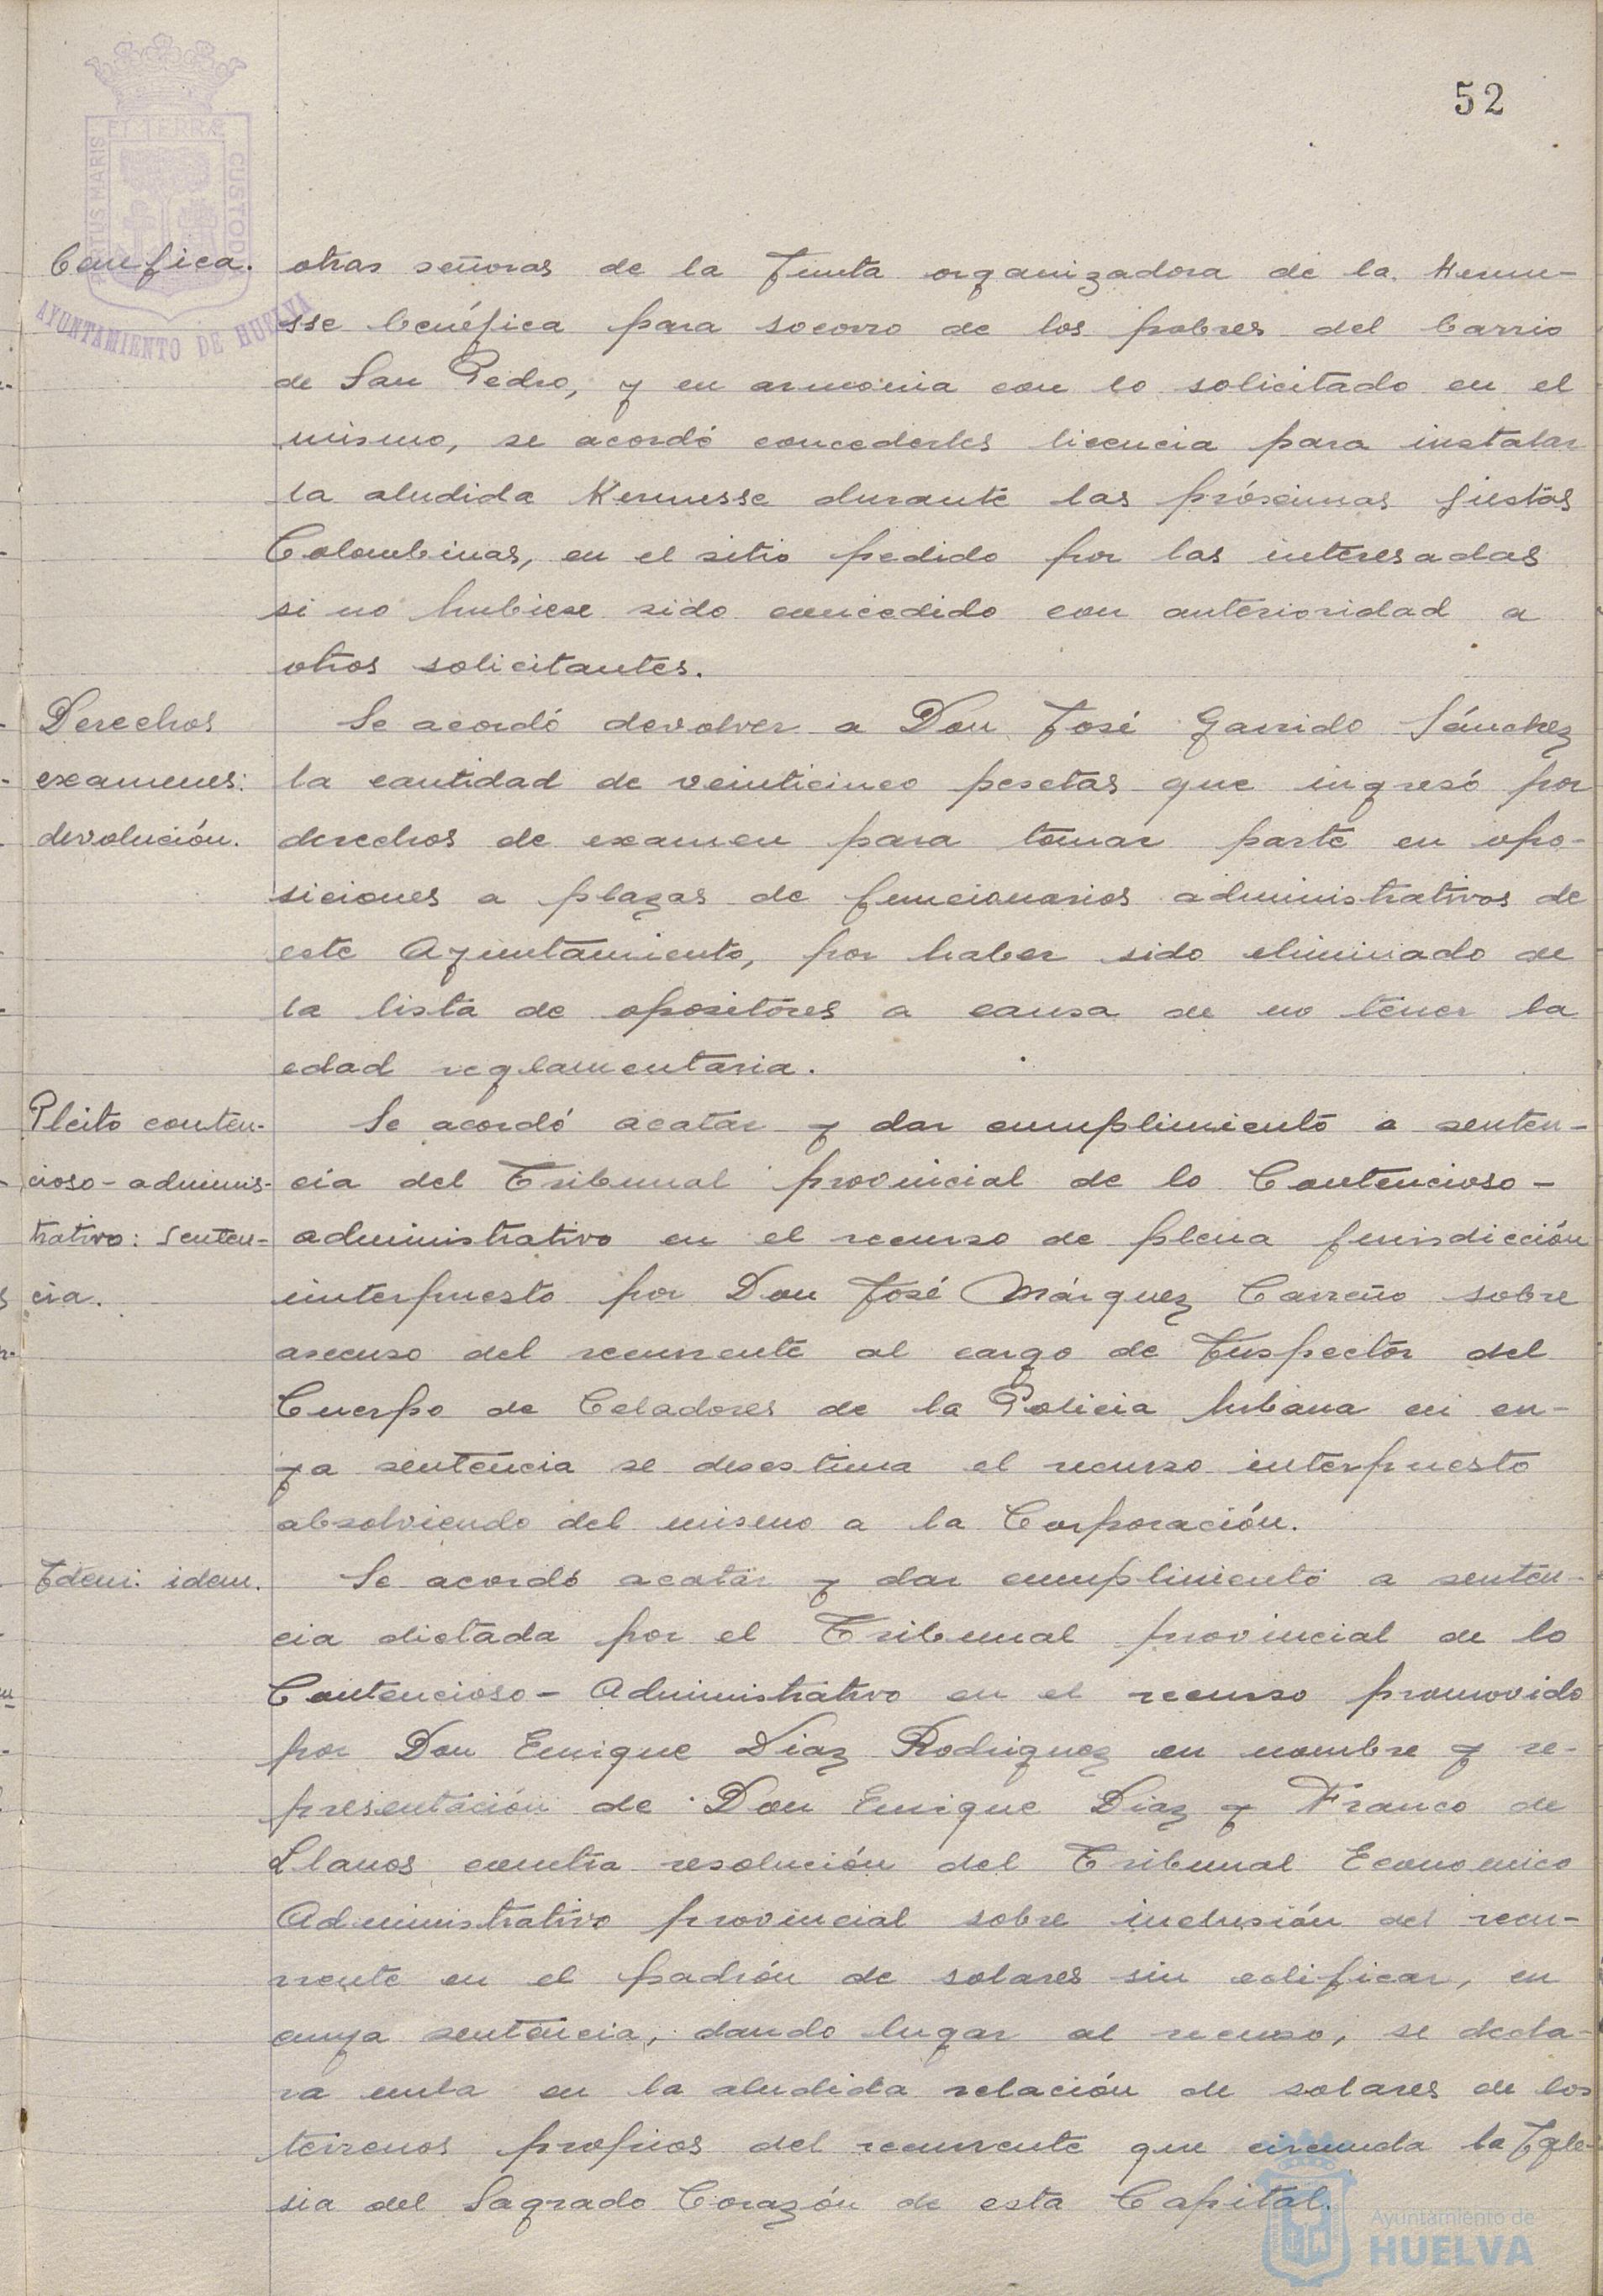 52
PORTUS MARIS ET TERRÆ CUSTODIA
AYUNTAMIENTO DE HUELVA
benéfica.
otras señoras de la Junta organizadora de la Kerme-
sse benéfica para socorro de los pobres del barrio
de San Pedro, y en armonia con lo solicitado en el
mismo, se acordó concederles licencia para instalar
la aludida Kermesse durante las próximas fiestas
Colombinas, en el sitio pedido por las interesadas
si no hubiese sido concedido con anterioridad a
otros solicitantes.
Derechos
examenes:
devolución.
Se acordó devolver a Don José Garrido Sánchez
la cantidad de veinticinco pesetas que ingresó por
derechos de examen para tomar parte en opo-
siciones a plazas de funcionarios administrativos de
este Ayuntamiento, por haber sido eliminado de
la lista de opositores a causa de no tener la
edad reglamentaria.
Pleito conten-
cioso-adminis-
trativo: senten-
cia.
Se acordó acatar y dar cumplimiento a senten-
cia del Tribunal provincial de lo Contencioso-
administrativo en el recurso de plena jurisdicción
interpuesto por Don José Márquez Carreño sobre
ascenso del recurrente al cargo de Inspector del
Cuerpo de Celadores de la Policia Urbana en cu-
ya sentencia se desestima el recurso interpuesto
absolviendo del mismo a la Corporación.
Idem: idem.
Se acordó acatar y dar cumplimiento a senten-
cia dictada por el Tribunal provincial de lo
Contencioso-Administrativo en el recurso promovido
por Don Enrique Diaz Rodriguez en nombre y re-
presentación de Don Enrique Diaz y Franco de
Llanos contra resolución del Tribunal Economico
Administrativo provincial sobre inclusión del recu-
rrente en el padrón de solares sin edificar, en
cuya sentencia, dando lugar al recurso, se decla-
ra nula en la aludida relación de solares de los
terrenos propios del recurrente que circunda la Igle-
sia del Sagrado Corazón de esta Capital.
Ayuntamiento de
HUELVA